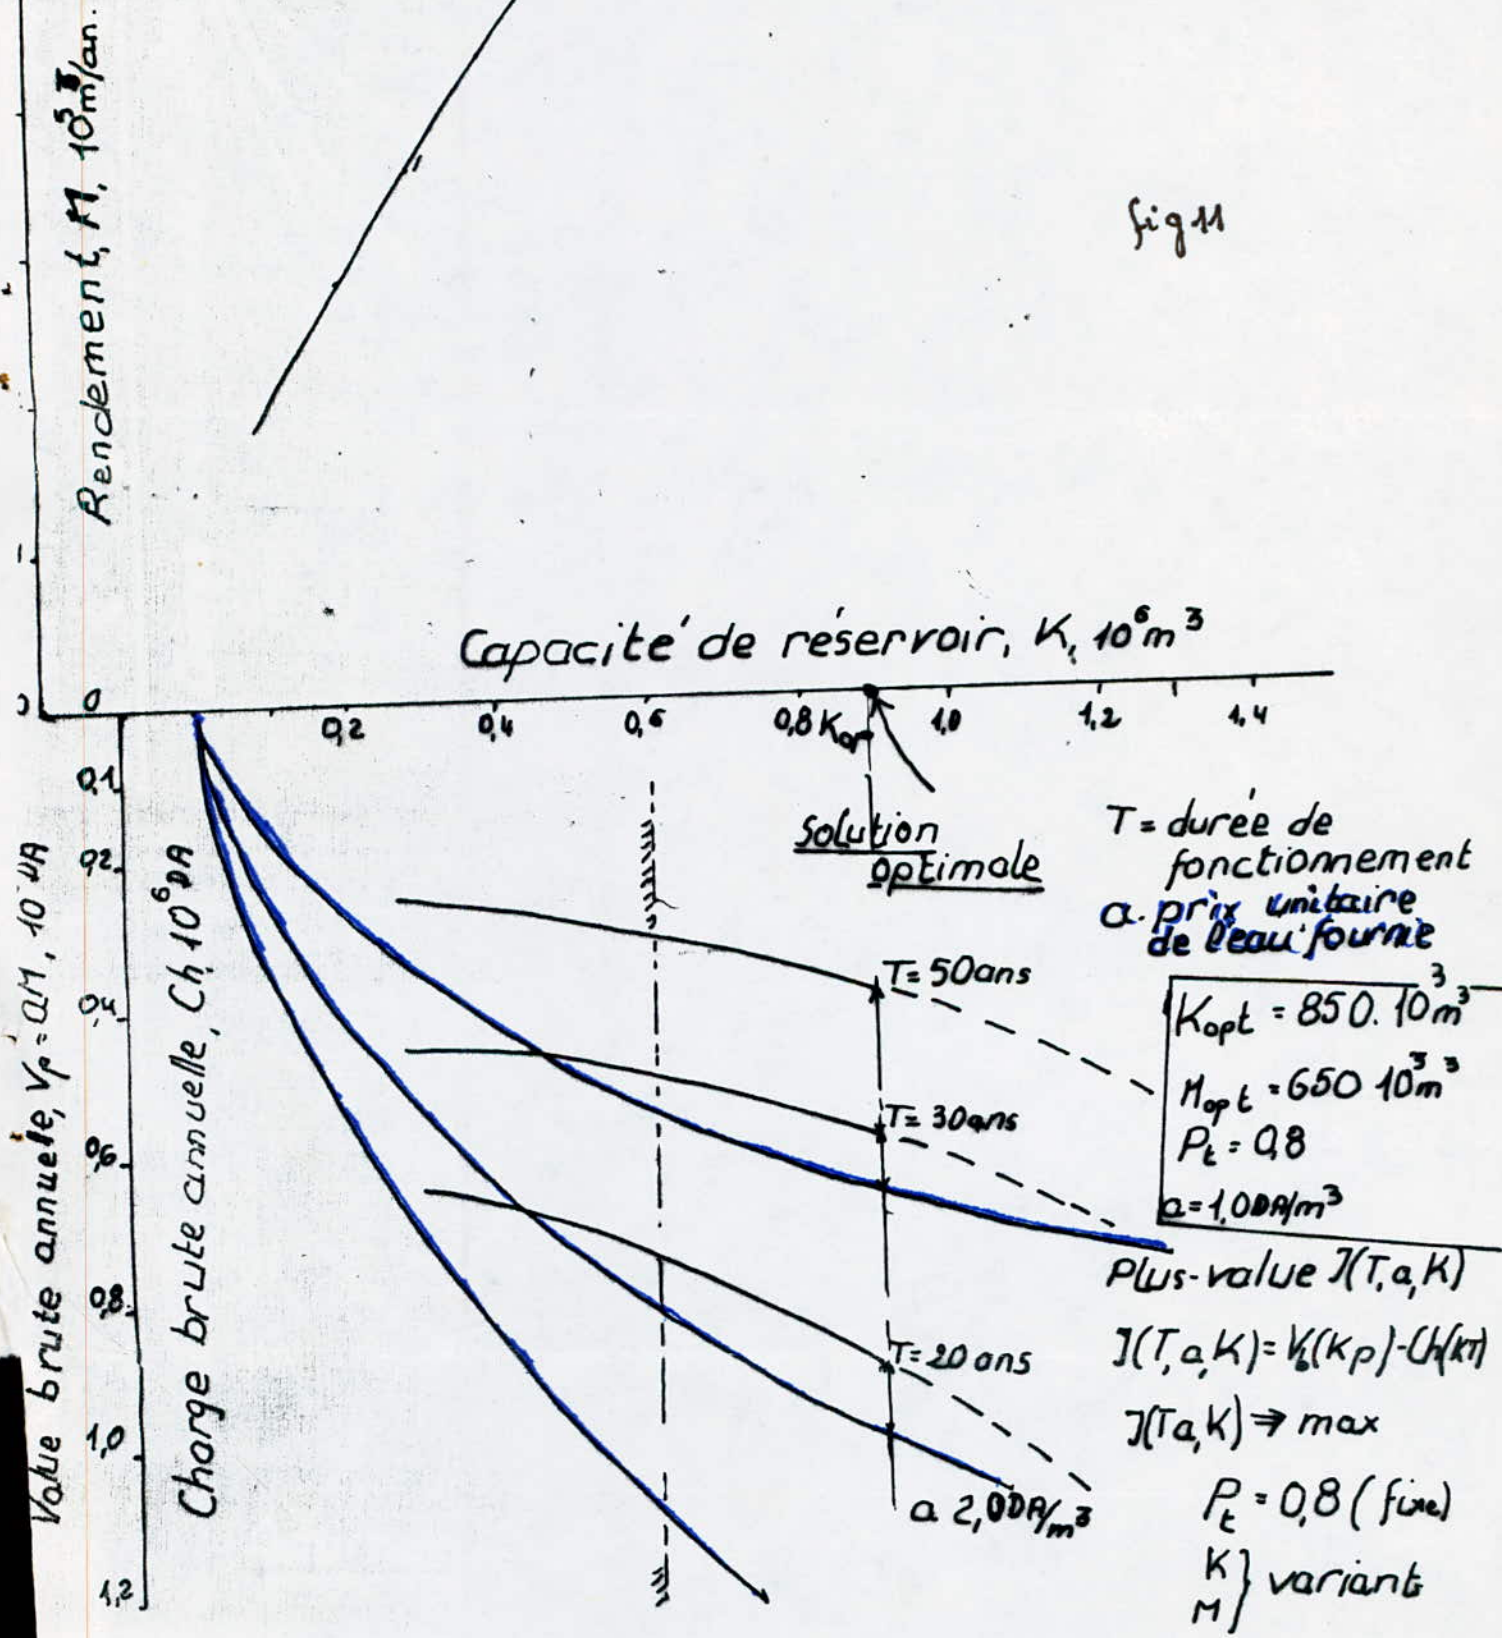 Rendement, M, 10³ m³/an.
fig 11
Capacité de réservoir, K, 10⁶m³
0
0,2
0,4
0,6
0,8
Kop
1,0
1,2
1,4
0,1
0,2
0,4
0,6
0,8
1,0
1,2
Value brute annuele, Vp = aM, 10 DA
Charge brute annuelle, Ch 10⁶ DA
Solution
optimale
T = durée de
fonctionnement
a. prix unitaire
de l'eau fournie
T = 50 ans
T = 30 ans
T = 20 ans
a 2,0 DA/m³
Kopt = 850. 10³ m³
Mopt = 650 10³ m³
Pt = 0,8
a = 1,0 DA/m³
Plus-value J(T,a,K)
J(T,a,K) = Vb(Kp) - Ch(KT)
J(Ta,K) ⇒ max
Pt = 0,8 (fixe)
K
M } variant